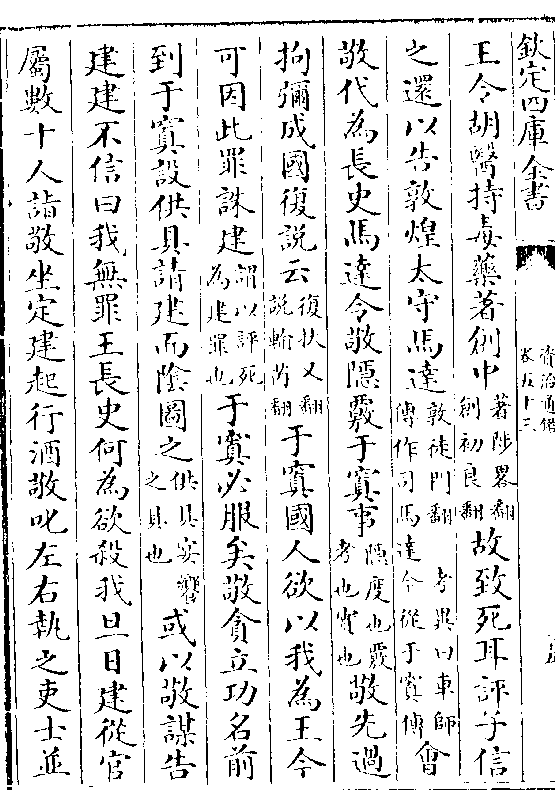 欽定四庫全書
資治通鑑
卷五十三
王令胡醫持毒藥著創中著陟畧翻創初良翻故致死耳評子信
之還以告敦煌太守馬達敦徒門翻考異曰車師傳作司馬達今從于窴傳會
敬代為長史馬達令敬隱覈于窴事隱度也覈考也實也敬先過
拘彌成國復說云復扶又翻說輸芮翻于窴國人欲以我為王今
可因此罪誅建謂以評死為建罪也于窴必服矣敬貪立功名前
到于窴設供具請建而陰圖之供具宴饗之具也或以敬謀告
建建不信曰我無罪王長史何為欲殺我旦日建從官
屬數十人詣敬坐定建起行酒敬叱左右執之吏士並